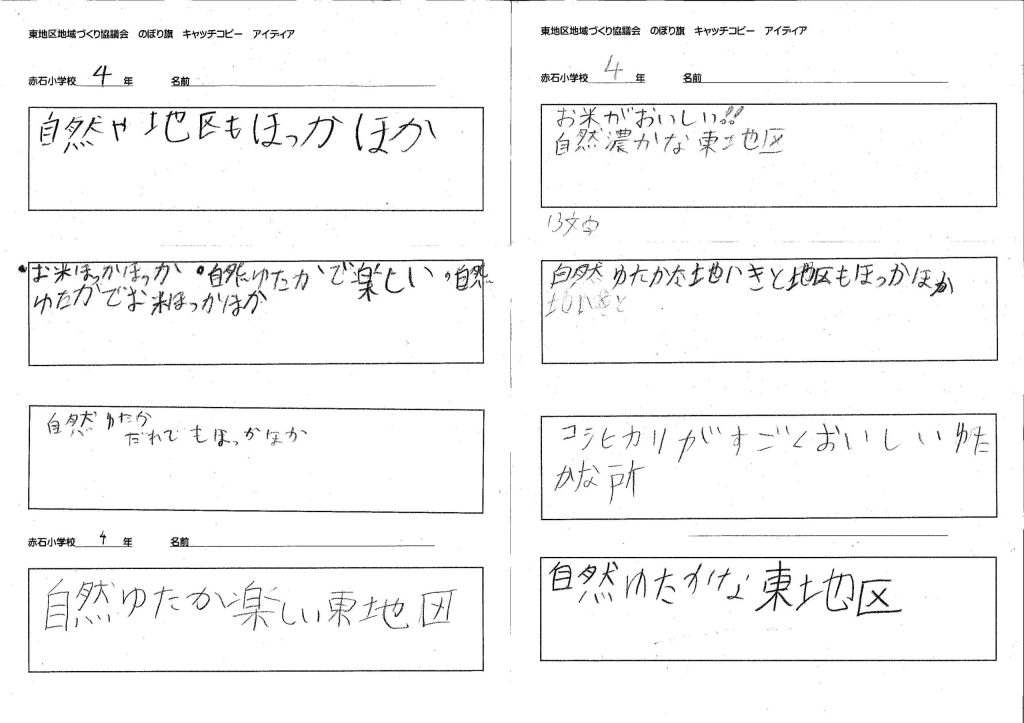 東地区地域づくり協議会　のぼり旗　キャッチコピー　アイティア
赤石小学校 4 年　名前
自然や地区もほっかほか
・お米ほっかほっか ・自然ゆたかで楽しい ・自然
ゆたかでお米ほっかほか
自然ゆたか
だれでもほっかほか
赤石小学校 4 年　名前
自然ゆたか楽しい東地区
東地区地域づくり協議会　のぼり旗　キャッチコピー　アイティア
赤石小学校 4 年　名前
お米がおいしい!!
自然濃かな東地区
13文字
自然ゆたかな地いきと地区もほっかほか
地いきと
コシヒカリがすごくおいしいゆた
かな所
自然ゆたかな東地区